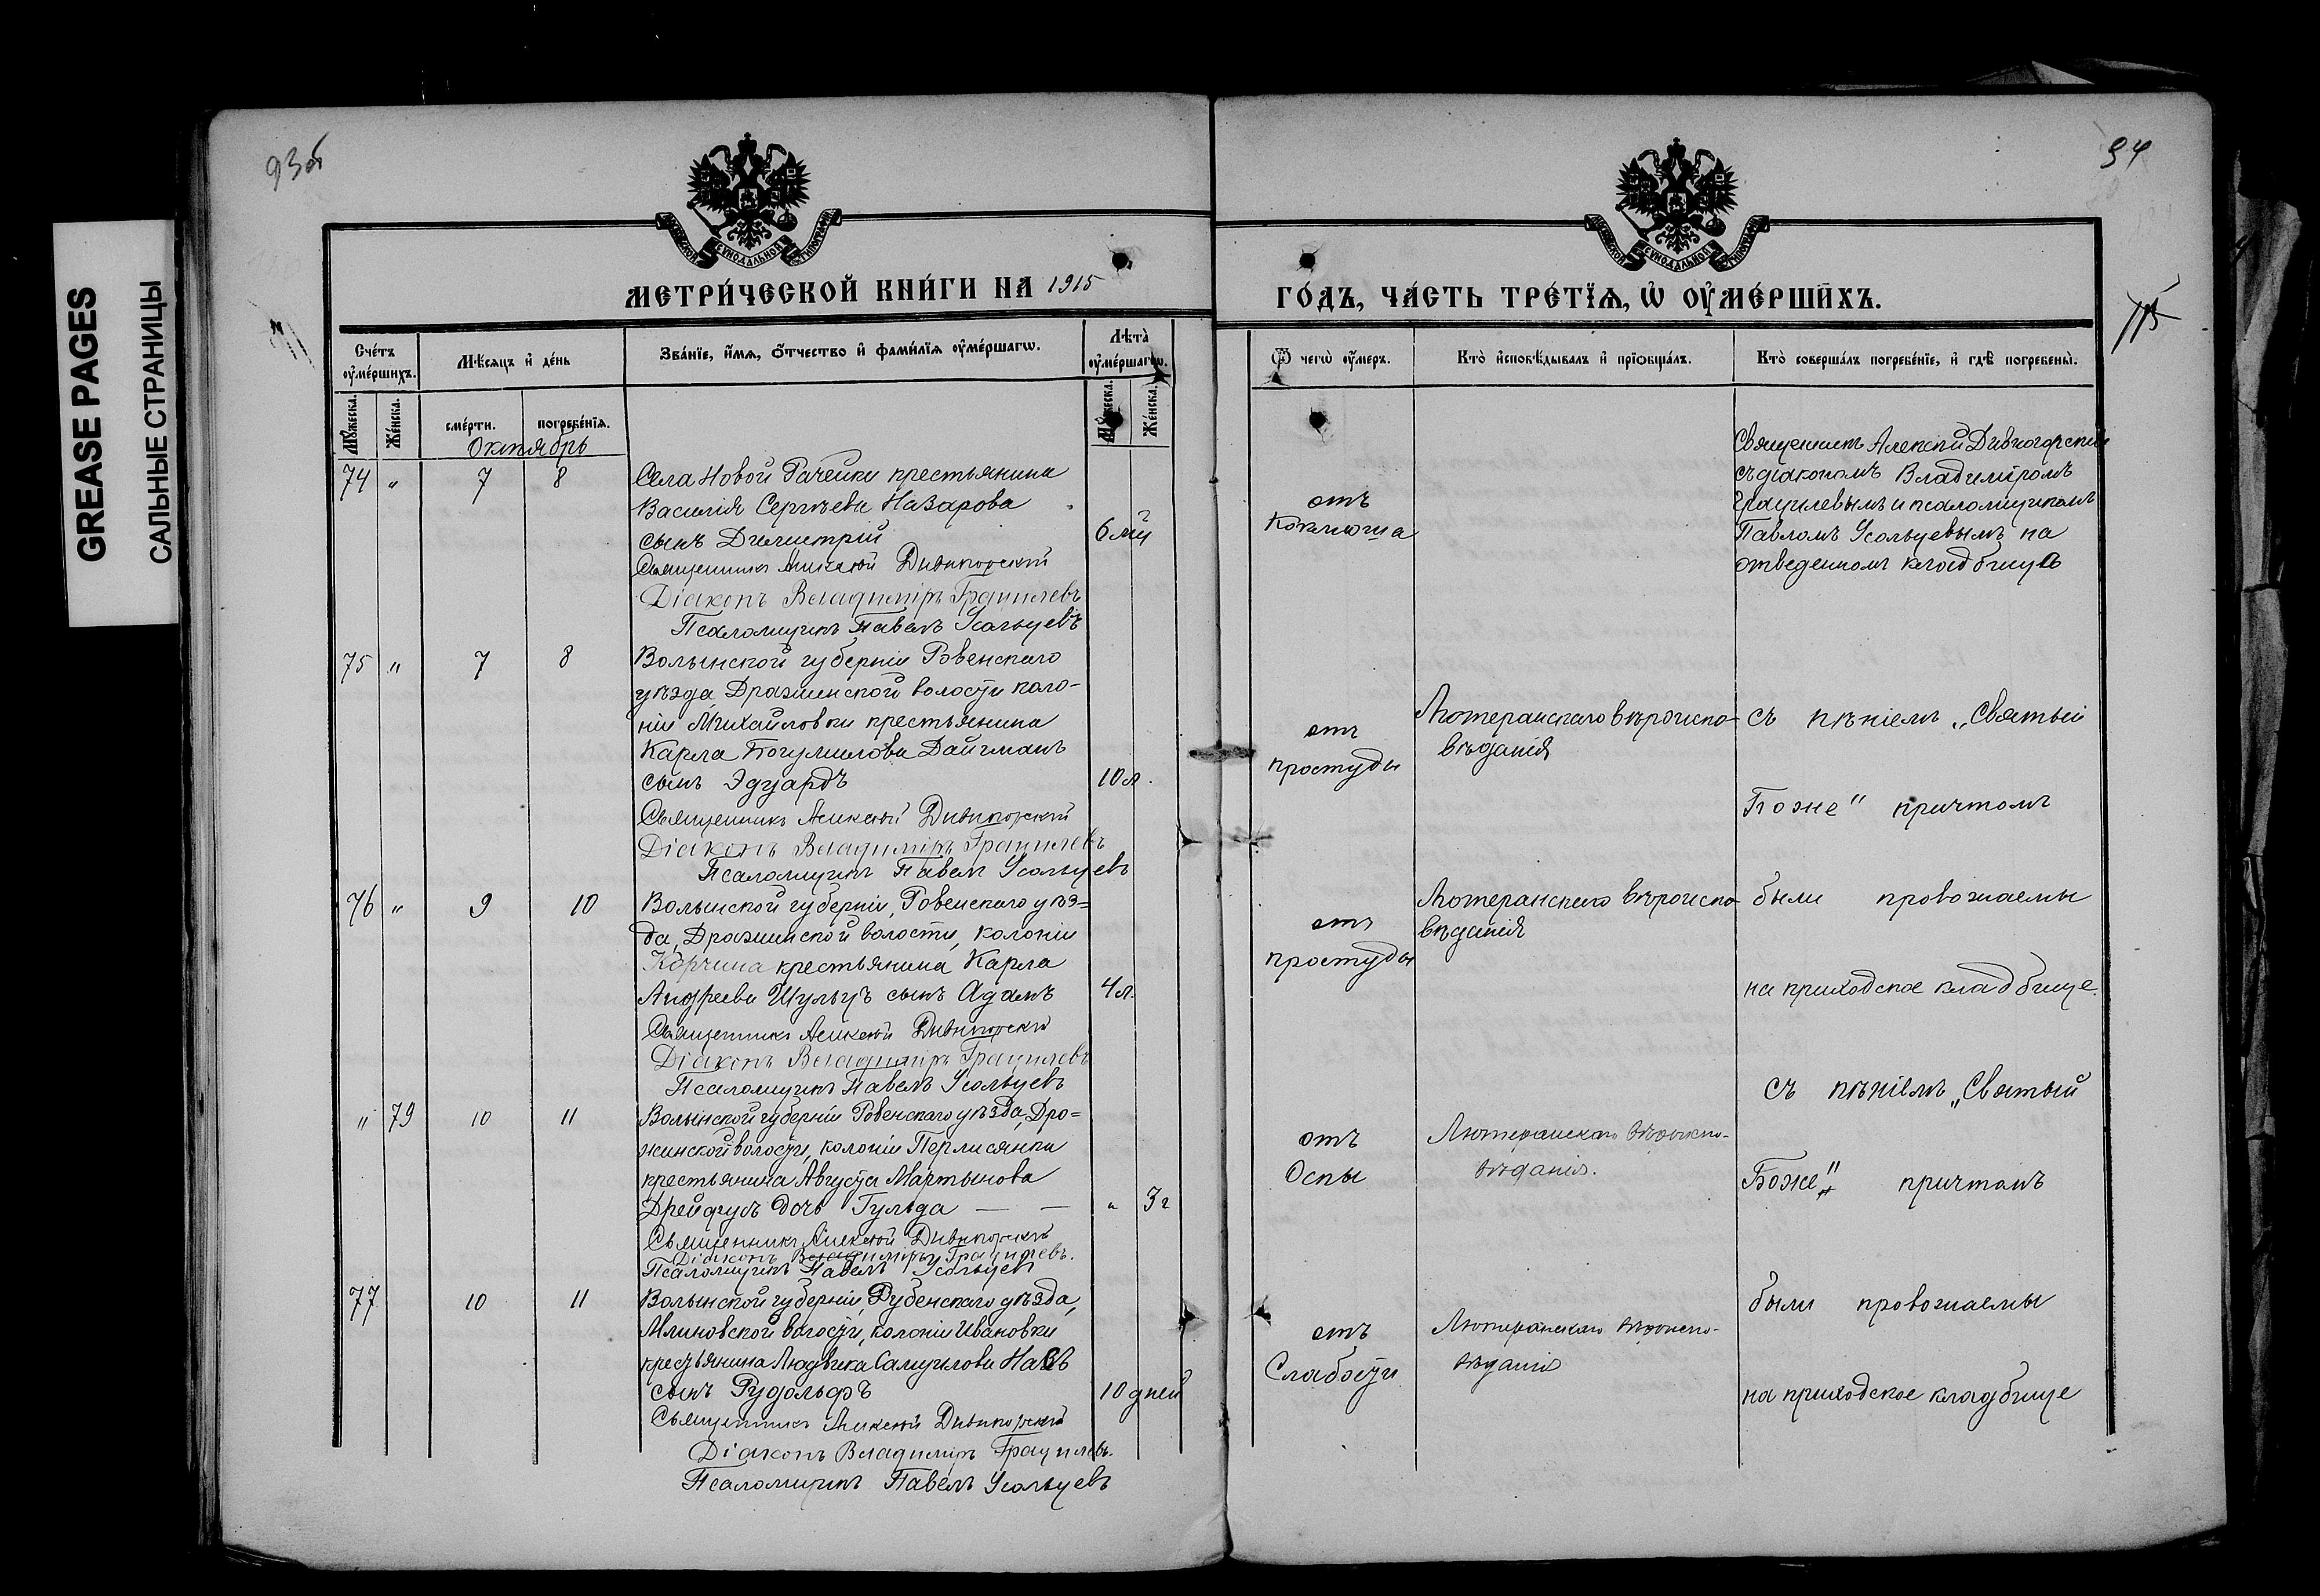 GREASE PAGES
САЛЬНЫЕ СТРАНИЦЫ
93об
94
МЕТРИ́ЧЕСКОЙ КНИ́ГИ НА 1915
ГО́ДЪ, ЧА́СТЬ ТРЕ́ТЇѦ, Ѡ҆ ОУ҆МЕ́РШИХЪ.
Сче́тъ оу҆ме́ршихъ.
Мѣ́сѧцъ и҆ де́нь
Зва́нїе, и҆́мѧ, ѻ҆́тчество и҆ фами́лїѧ оу҆ме́ршагѡ.
Лѣ́та оу҆ме́ршагѡ.
Ѿ чегѡ̀ оу҆́меръ.
Кто̀ и҆сповѣ́дывалъ и҆ прїѡбща́лъ.
Кто̀ соверша́лъ погребе́нїе, и҆ гдѣ̀ погребены̀.
Мꙋ́жеска.
Же́нска.
сме́рти.
погребе́нїѧ.
Мꙋ́жеска.
Же́нска.
Октябрь
74 " 7 8
Села Новой Рачейки крестьянина
Василія Сергѣева Назарова
сынъ Димитрій
6 мц
Священникъ Алексій Дивногорскій
Діаконъ Владиміръ Грацилевъ
Псаломщикъ Павелъ Усольцевъ
отъ
Коклюша
Священникъ Алексій Дивногорскій
съ діакономъ Владиміромъ
Грацилевымъ и псаломщикомъ
Павломъ Усольцевымъ на
отведенномъ кладбищѣ
75 " 7 8
Волынской губерніи Ровенскаго
уѣзда, Дражинской волости коло-
ніи Михайловки крестьянина
Карла Богумилова Дайчманъ
сынъ Эдуардъ
10 л.
Священникъ Алексій Дивногорскій
Діаконъ Владиміръ Грацилевъ
Псаломщикъ Павелъ Усольцевъ
отъ
простуды
Лютеранскаго вѣроиспо-
вѣданія
съ пѣніемъ „Святый
Боже" причтомъ
76 " 9 10
Волынской губерніи, Ровенскаго уѣз=
да, Дражинской волости, колоніи
Корчина крестьянина Карла
Андреева Шульцъ сынъ Адамъ
4 л.
Священникъ Алексій Дивногорскій
Діаконъ Владиміръ Грацилевъ
Псаломщикъ Павелъ Усольцевъ
отъ
простуды
Лютеранскаго вѣроиспо-
вѣданія
были провожаемы
на приходское кладбище.
" 79 10 11
Волынской губерніи Ровенскаго уѣзда, Дро=
жинской волости, колоніи Перлисянка
крестьянина Августа Мартынова
Дрейфусъ дочь Гульда — —
" 3 г
Священникъ Алексій Дивногорскій
Діаконъ Владиміръ Грацилевъ.
Псаломщикъ Павелъ Усольцевъ
отъ
Оспы
Лютеранскаго вѣроиспо-
вѣданія.
съ пѣніемъ „Святый
Боже" причтомъ
77 10 11
Волынской губерніи, Дубенскаго уѣзда,
Млиновской волости, колоніи Ивановки
крестьянина Людвика Самуилова
сынъ Рудольфъ
10 дней
Священникъ Алексій Дивногорскій
Діаконъ Владиміръ Грацилевъ.
Псаломщикъ Павелъ Усольцевъ
отъ
Слабости
Лютеранскаго вѣроиспо-
вѣданія
были провожаемы
на приходское кладбище